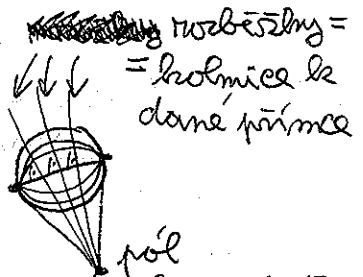 rozběžky =
= kolmice k
dané přímce
pól